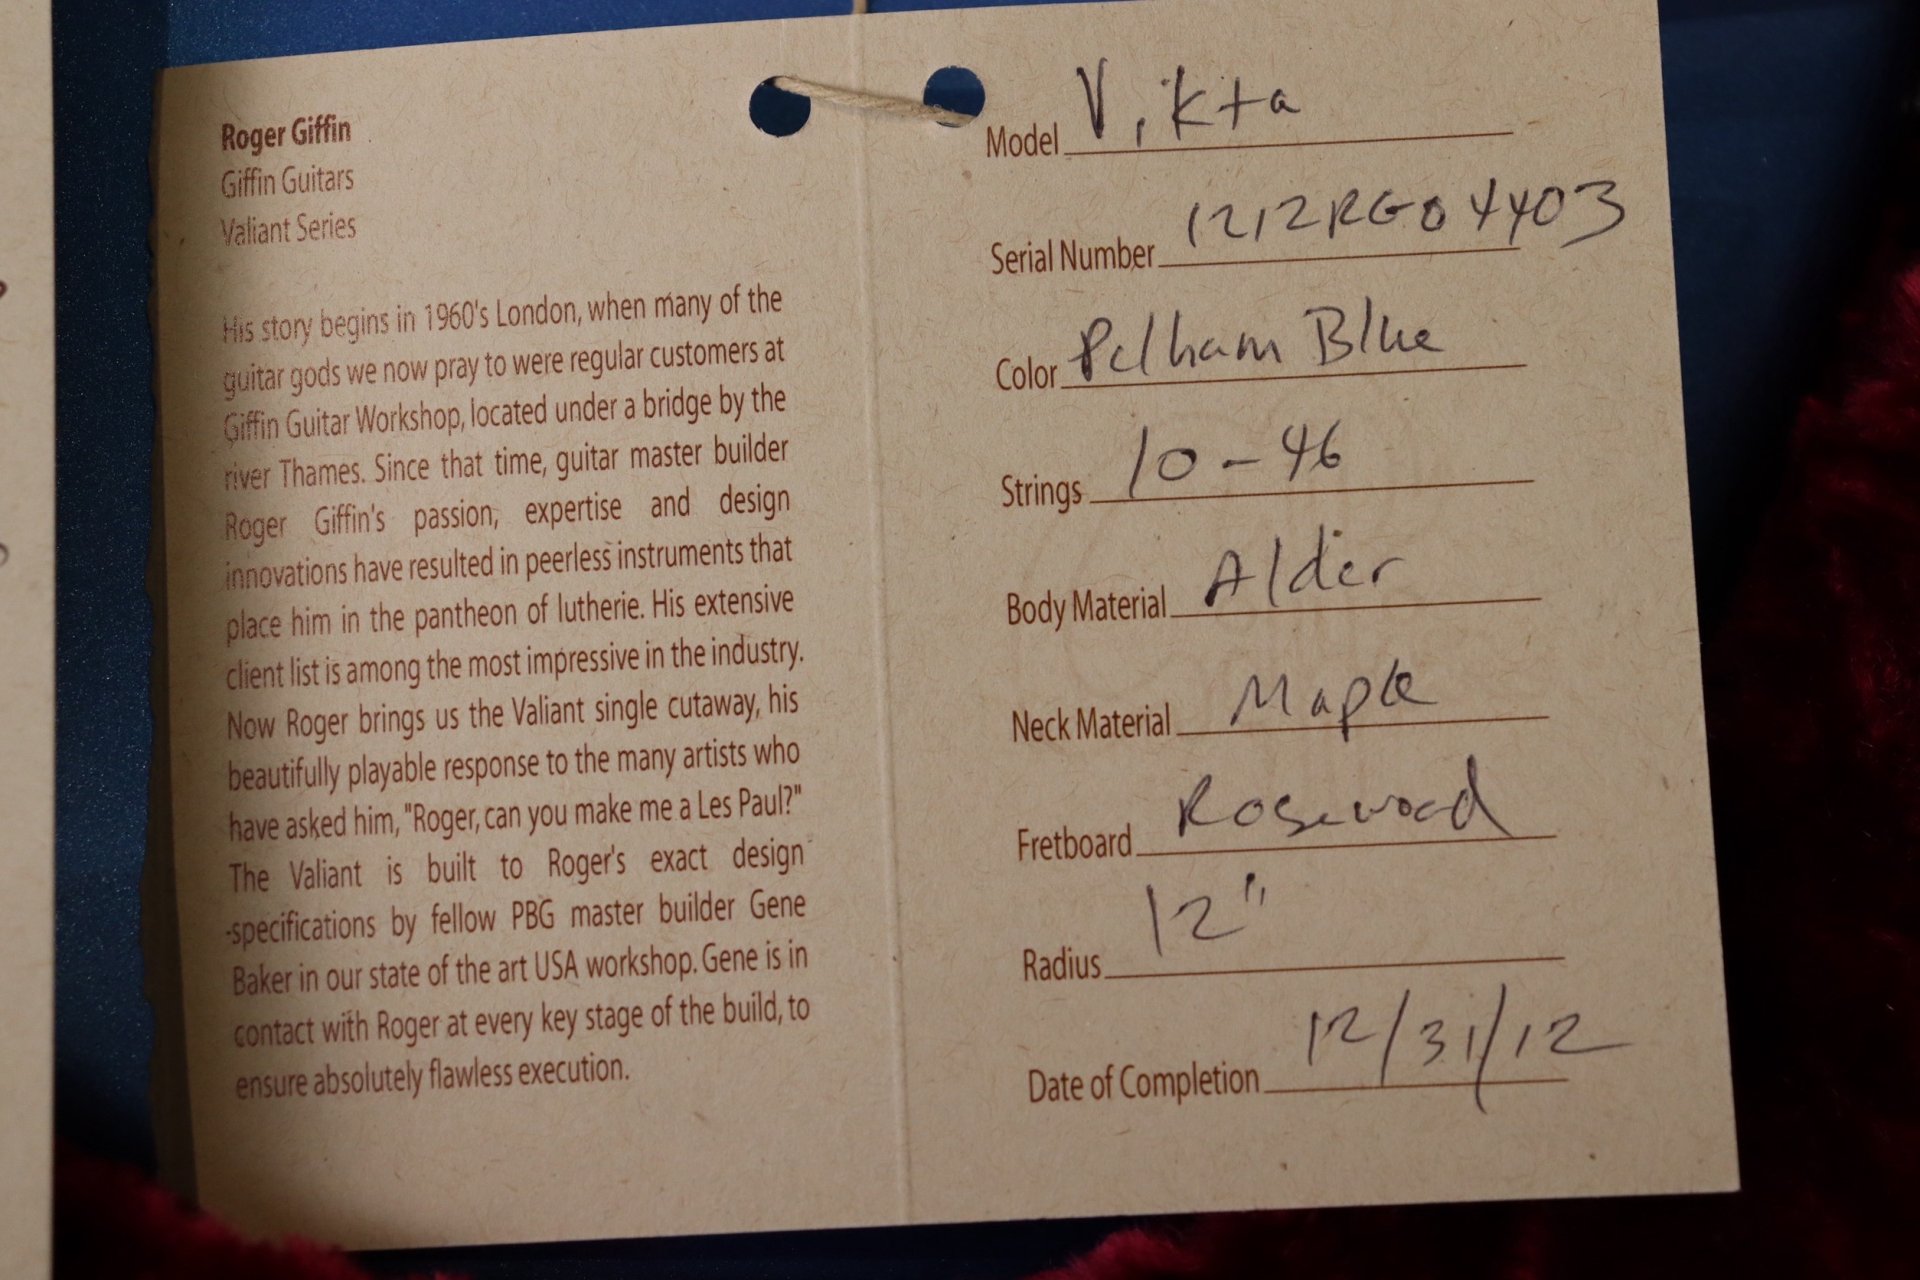 Roger Giffin
Giffin Guitars
Valiant Series
His story begins in 1960's London, when many of the
guitar gods we now pray to were regular customers at
Giffin Guitar Workshop, located under a bridge by the
river Thames. Since that time, guitar master builder
Roger Giffin's passion, expertise and design
innovations have resulted in peerless instruments that
place him in the pantheon of lutherie. His extensive
client list is among the most impressive in the industry.
Now Roger brings us the Valiant single cutaway, his
beautifully playable response to the many artists who
have asked him, "Roger, can you make me a Les Paul?"
The Valiant is built to Roger's exact design
-specifications by fellow PBG master builder Gene
Baker in our state of the art USA workshop. Gene is in
contact with Roger at every key stage of the build, to
ensure absolutely flawless execution.
Model Vikta
Serial Number 1212RG04403
Color Pelham Blue
Strings 10-46
Body Material Alder
Neck Material Maple
Fretboard Rosewood
Radius 12"
Date of Completion 12/31/12